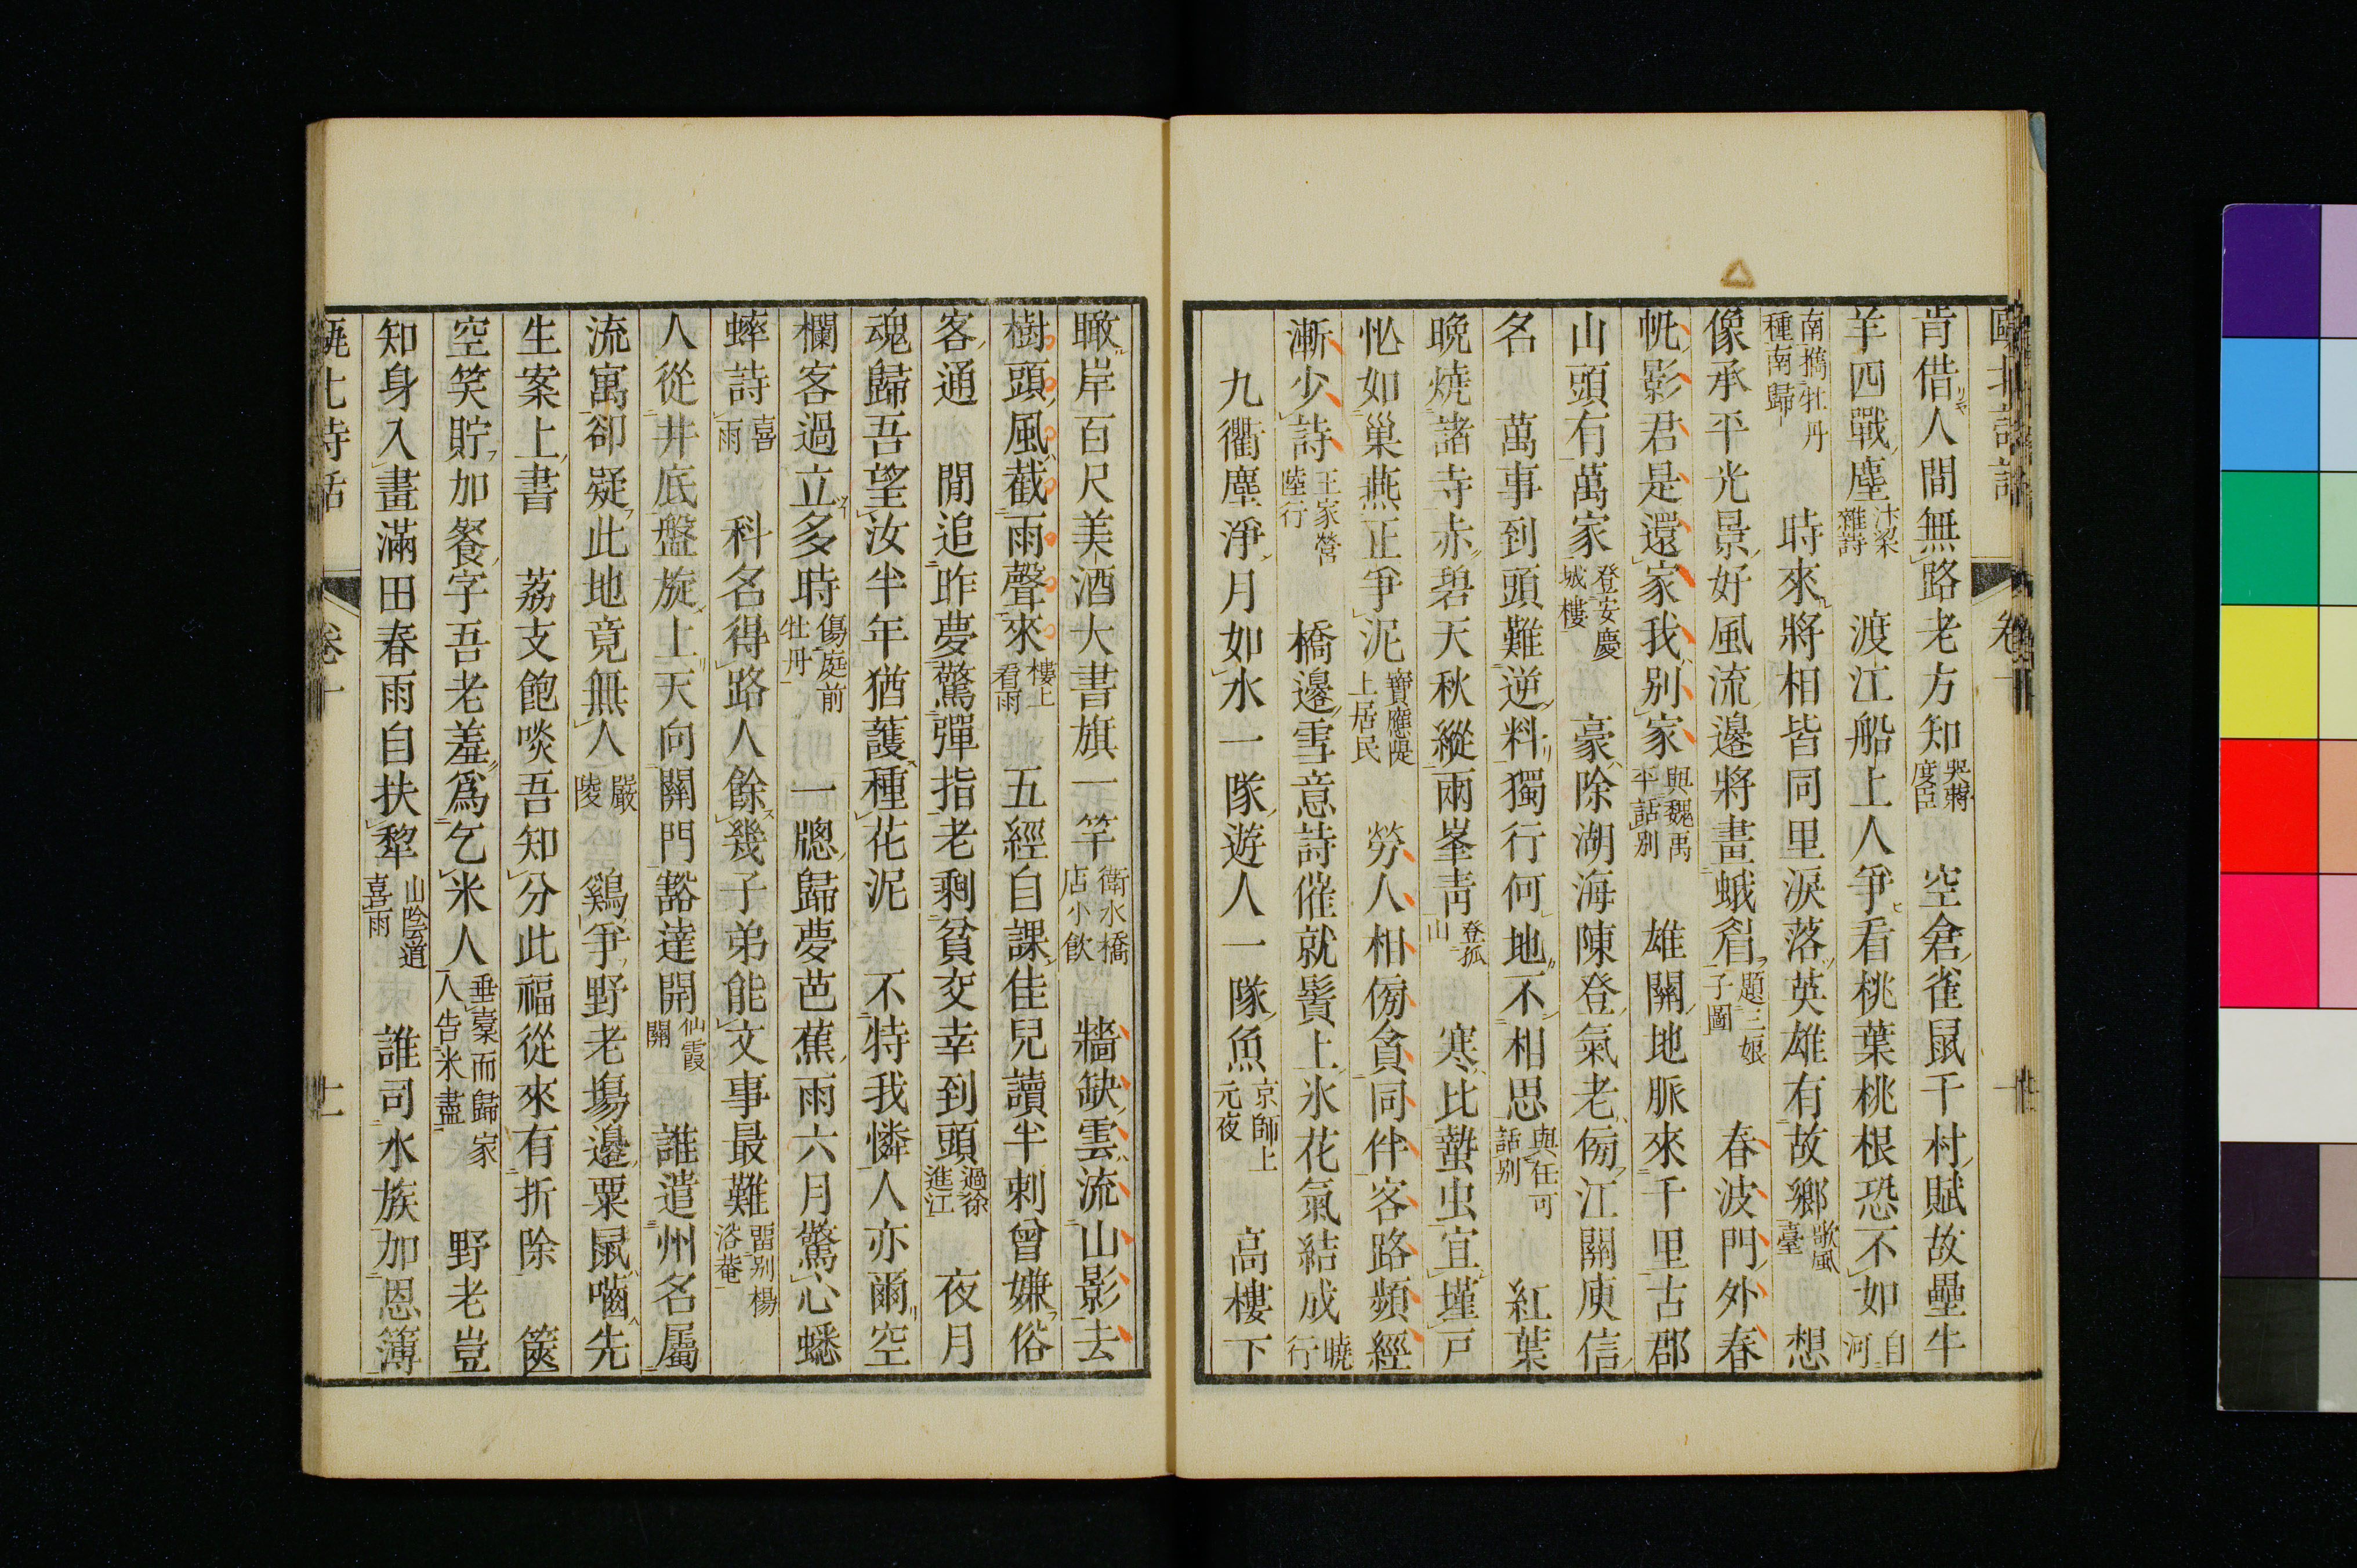 甌北詩話 卷十一
肯借人間無路老方知哭蔣度臣 空倉雀鼠千村賦故壘牛
羊四戰塵汴梁雜詩 渡江船上人爭看桃葉桃根恐不如自河
南攜牡丹種南歸 時來將相皆同里淚落英雄有故鄉歌風臺 想
像承平光景好風流邊將畫蛾眉題三娘子圖 春波門外春
帆影君是還家我別家與魏禹平話別 雄關地脈來千里古郡
山頭有萬家登安慶城樓 豪除湖海陳登氣老傍江關庾信
名 萬事到頭難逆料獨行何地不相思與任可話別 紅葉
晚燒諸寺赤碧天秋縱兩峯青登孤山 寒比蟄虫宜墐戸
忙如巢燕正爭泥寶應隄上居民 勞人相傍貪同伴客路頻經
漸少詩王家營陸行 橋邊雪意詩催就鬢上氷花氣結成曉行
九衢塵淨月如水一隊遊人一隊魚京師上元夜 高樓下
瞰岸百尺美酒大書旗一竿衛水橋店小飲 牆缺雲流山影去
樹頭風截雨聲來樓上看雨 五經自課佳兒讀半刺曾嫌俗
客通 閒追昨夢驚彈指老剩貧交幸到頭過徐進江 夜月
魂歸吾望汝半年猶護種花泥 不特我憐人亦爾空
欄客過立多時傷庭前牡丹 一牕歸夢芭蕉雨六月驚心蟋
蟀詩喜雨 科名得路人餘幾子弟能文事最難留別楊洛菴
人從井底盤旋上天向關門豁達開仙霞關 誰遣州名屬
流寓卻疑此地竟無人嚴陵 鷄爭野老場邊粟鼠嚙先
生案上書 荔支飽啖吾知分此福從來有折除 篋
空笑貯加餐字吾老羞爲乞米人垂橐而歸家人告米盡 野老豈
知身入畫滿田春雨自扶犂山陰道喜雨 誰司水族加恩簿
甌北詩話 卷十一 十一